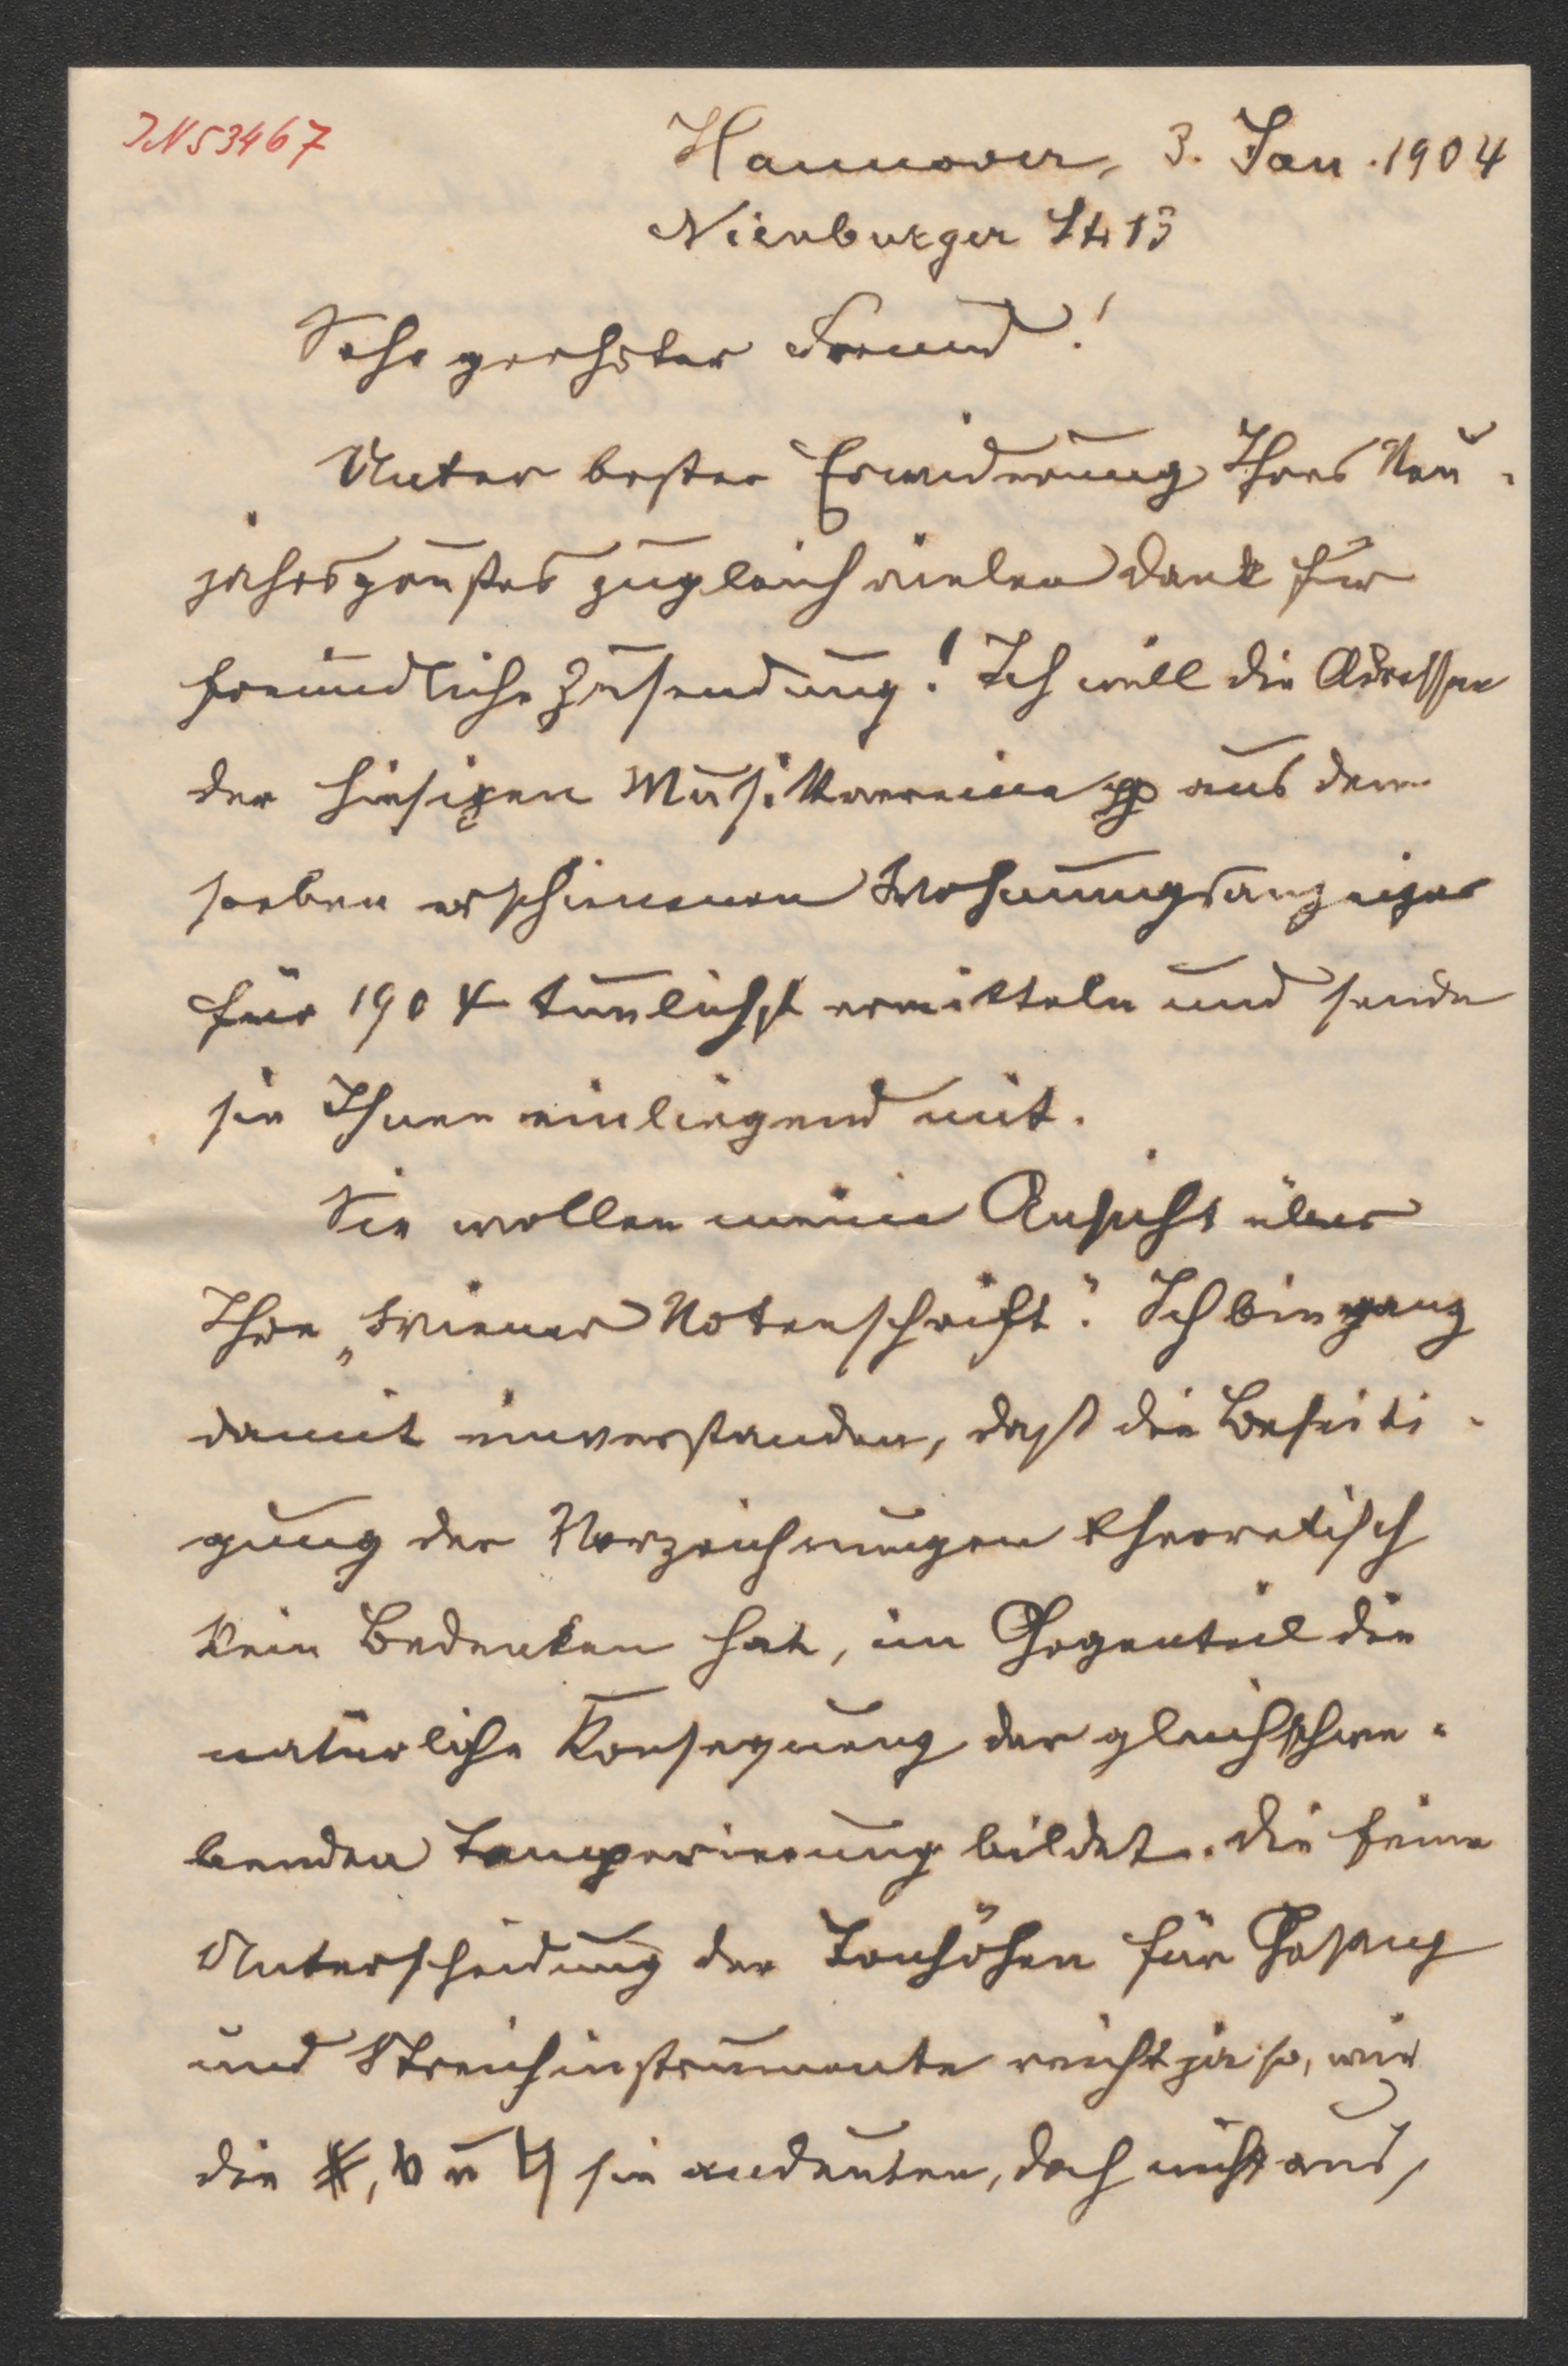 JN 53467
Hannover, 3. Jan. 1904
Nienburger Str 13
Sehr geehrter Freund!
Unter bester Erwiderung Ihres Neu-
jahrsgrußes zugleich vielen Dank für
freundliche Zusendung! Ich will die Adressen
der hiesigen Musikvereine pp aus dem
soeben erschienenen Wohnungsanzeiger
für 1904 tunlichst ermitteln und sende
sie Ihnen einliegend mit.
Sie wollen meine Ansicht über
Ihre „Wiener Notenschrift“. Ich bin ganz
damit einverstanden, daß die Beseiti-
gung der Vorzeichnungen theoretisch
kein Bedenken hat, im Gegenteil die
natürliche Konsequenz der gleichschwe-
benden Temperierung bildet. Die feine
Unterscheidung der Tonhöhen für Gesang
und Streichinstrumente reicht ja so, wie
die ♯, ♭ u ♮ sie andeuten, doch nicht aus,